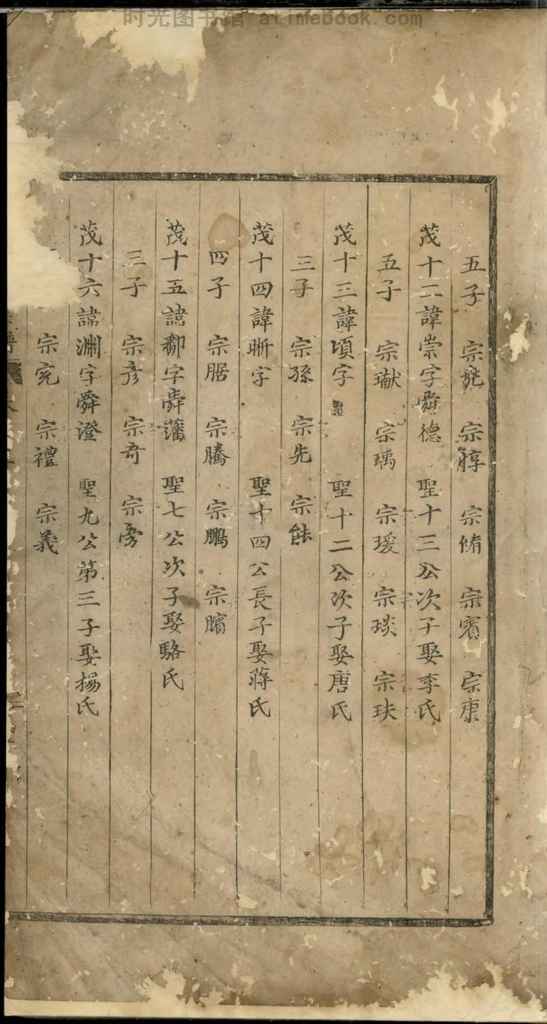 时光图书馆 atimebook.com
五子 宗 宗膵 宗脩 宗賓 宗康
茂十二諱崇字舜德 聖十三公次子娶李氏
五子 宗瓛 宗瑀 宗瑗 宗琰 宗玞
茂十三諱頃字 聖十二公次子娶唐氏
三子 宗孫 宗先 宗
茂十四諱斷字 聖十四公長子娶蔣氏
四子 宗腒 宗騰 宗鵬 宗臏
茂十五諱鄱字舜藩 聖七公次子娶駱氏
三子 宗彥 宗奇 宗旁
茂十六諱淵字舜澄 聖九公第三子娶楊氏
宗宪 宗禮 宗義